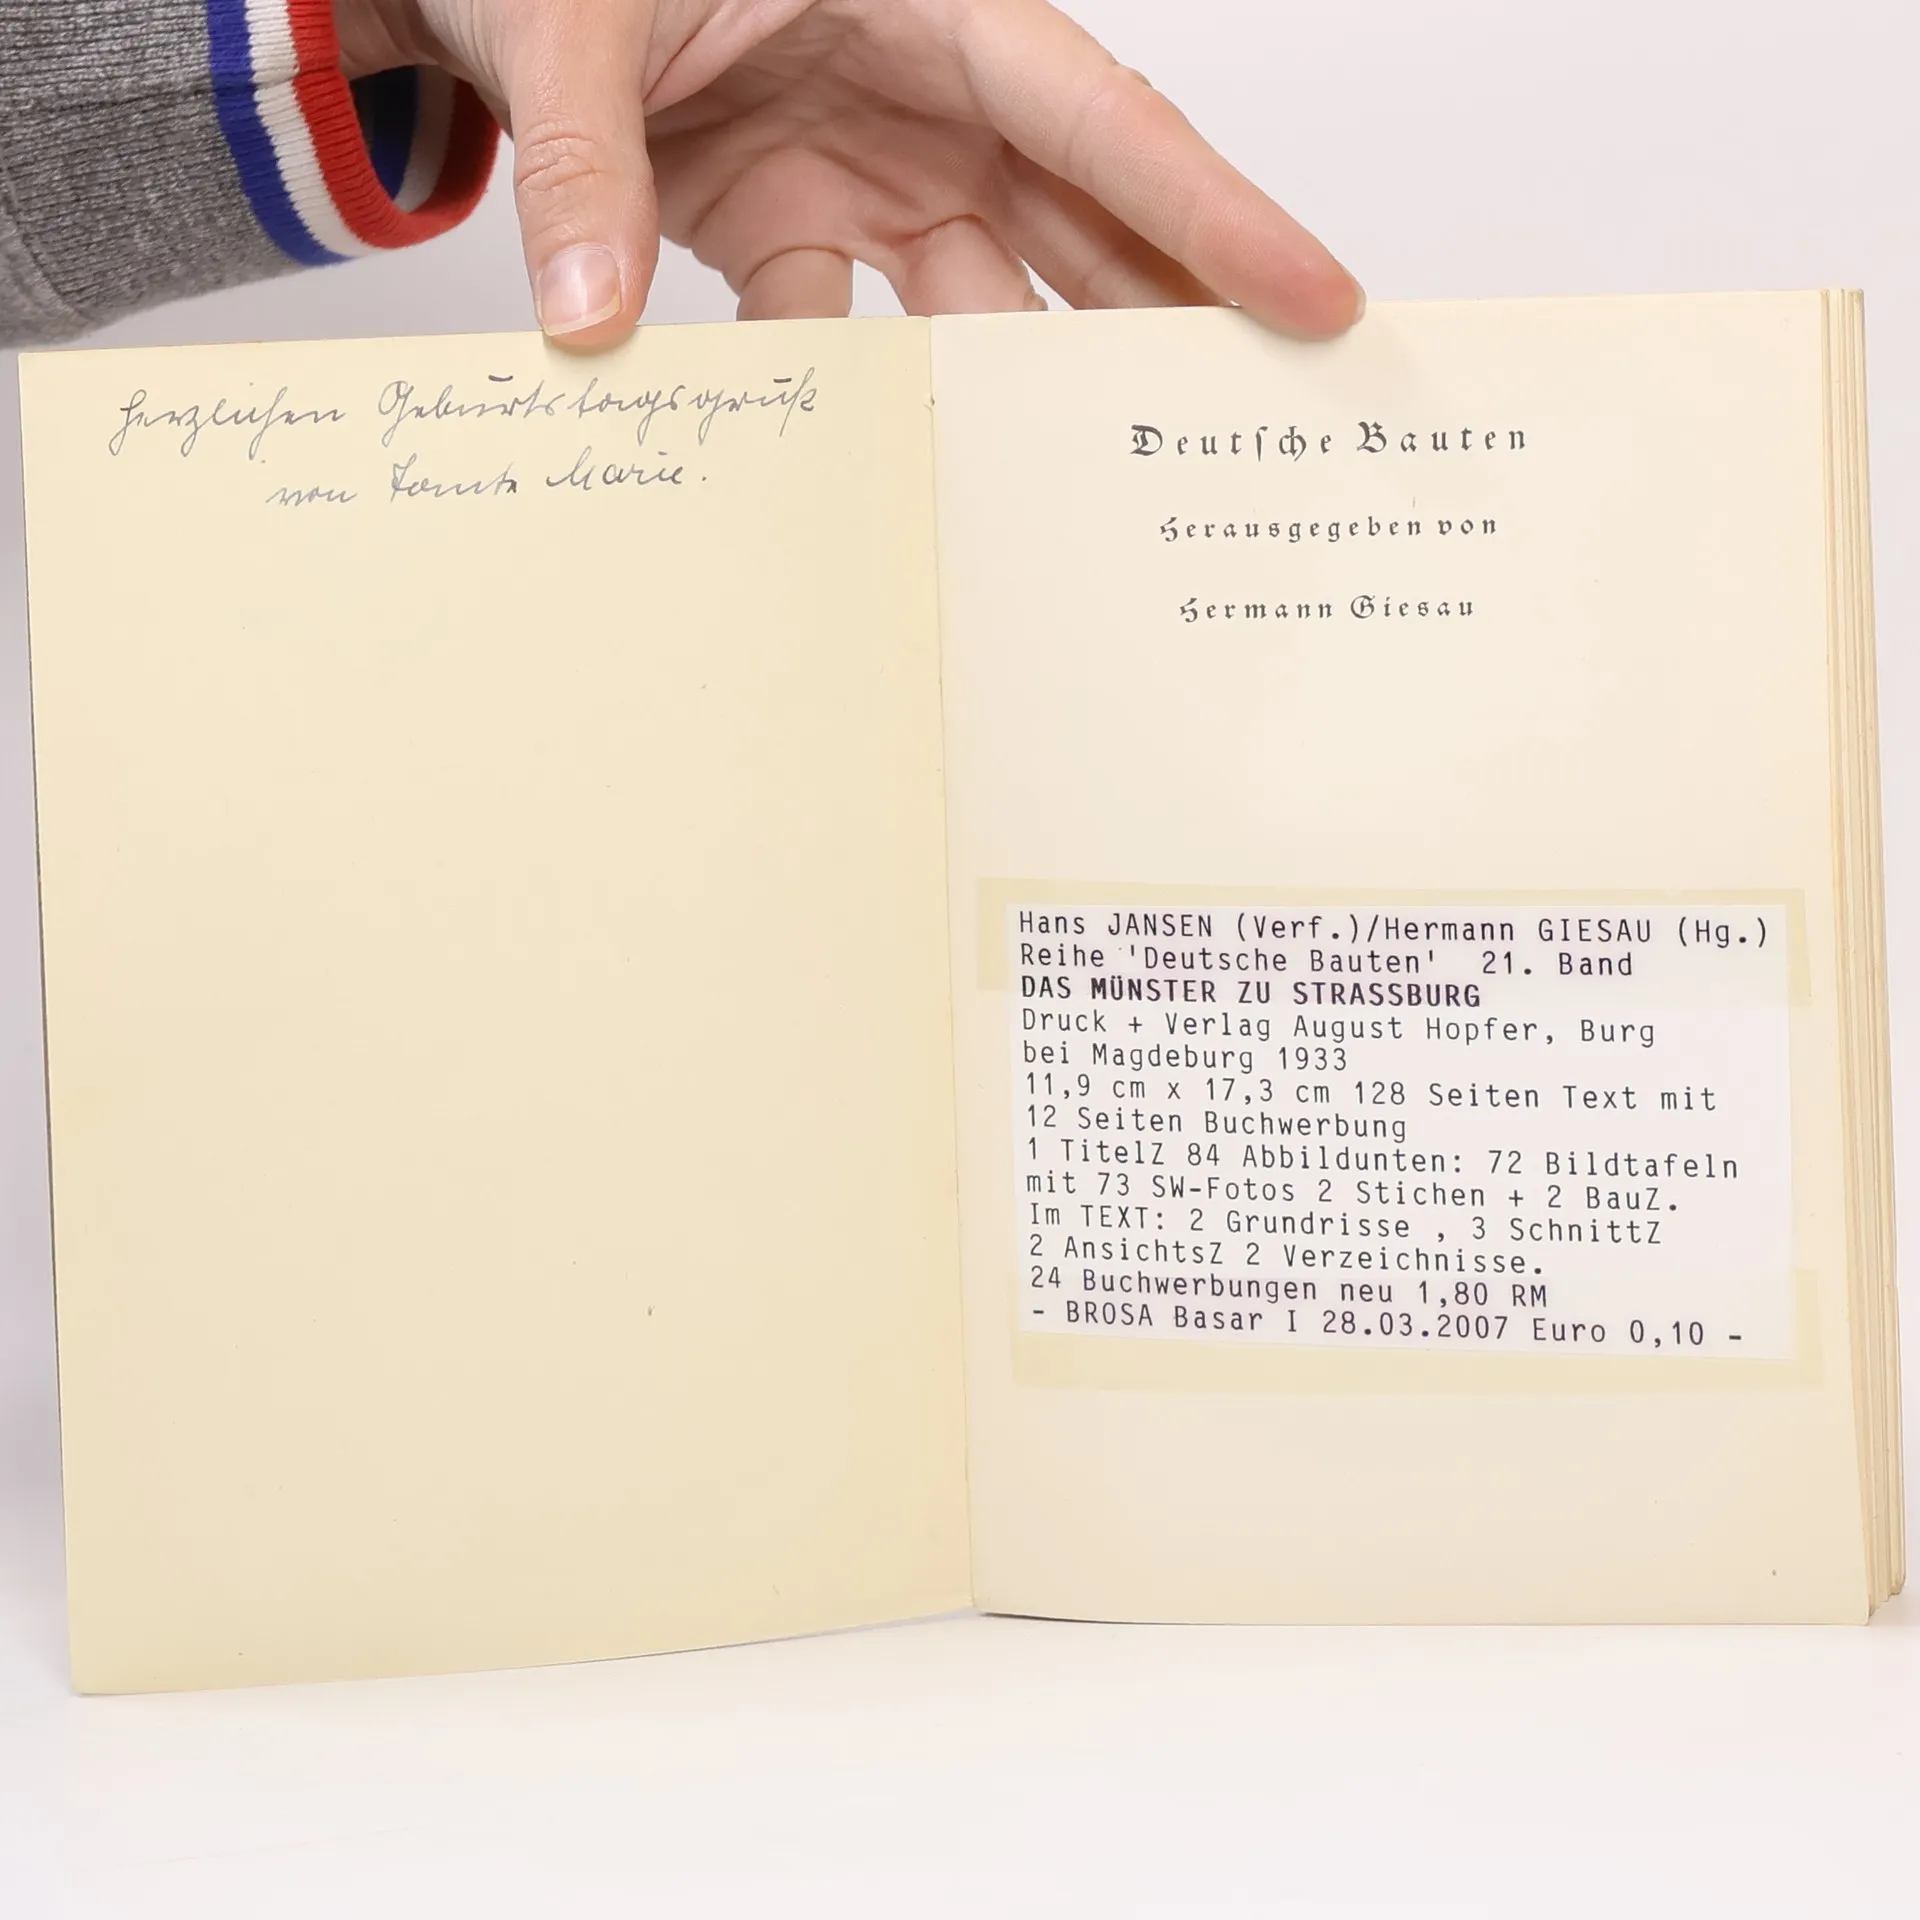 herzlichen Geburtstagsgruß
von Tante Marie.
Deutſche Bauten
Herausgegeben von
Hermann Giesau
Hans JANSEN (Verf.)/Hermann GIESAU (Hg.)
Reihe 'Deutsche Bauten' 21. Band
DAS MÜNSTER ZU STRASSBURG
Druck + Verlag August Hopfer, Burg
bei Magdeburg 1933
11,9 cm x 17,3 cm 128 Seiten Text mit
12 Seiten Buchwerbung
1 TitelZ 84 Abbildunten: 72 Bildtafeln
mit 73 SW-Fotos 2 Stichen + 2 BauZ.
Im TEXT: 2 Grundrisse , 3 SchnittZ
2 AnsichtsZ 2 Verzeichnisse.
24 Buchwerbungen neu 1,80 RM
- BROSA Basar I 28.03.2007 Euro 0,10 -